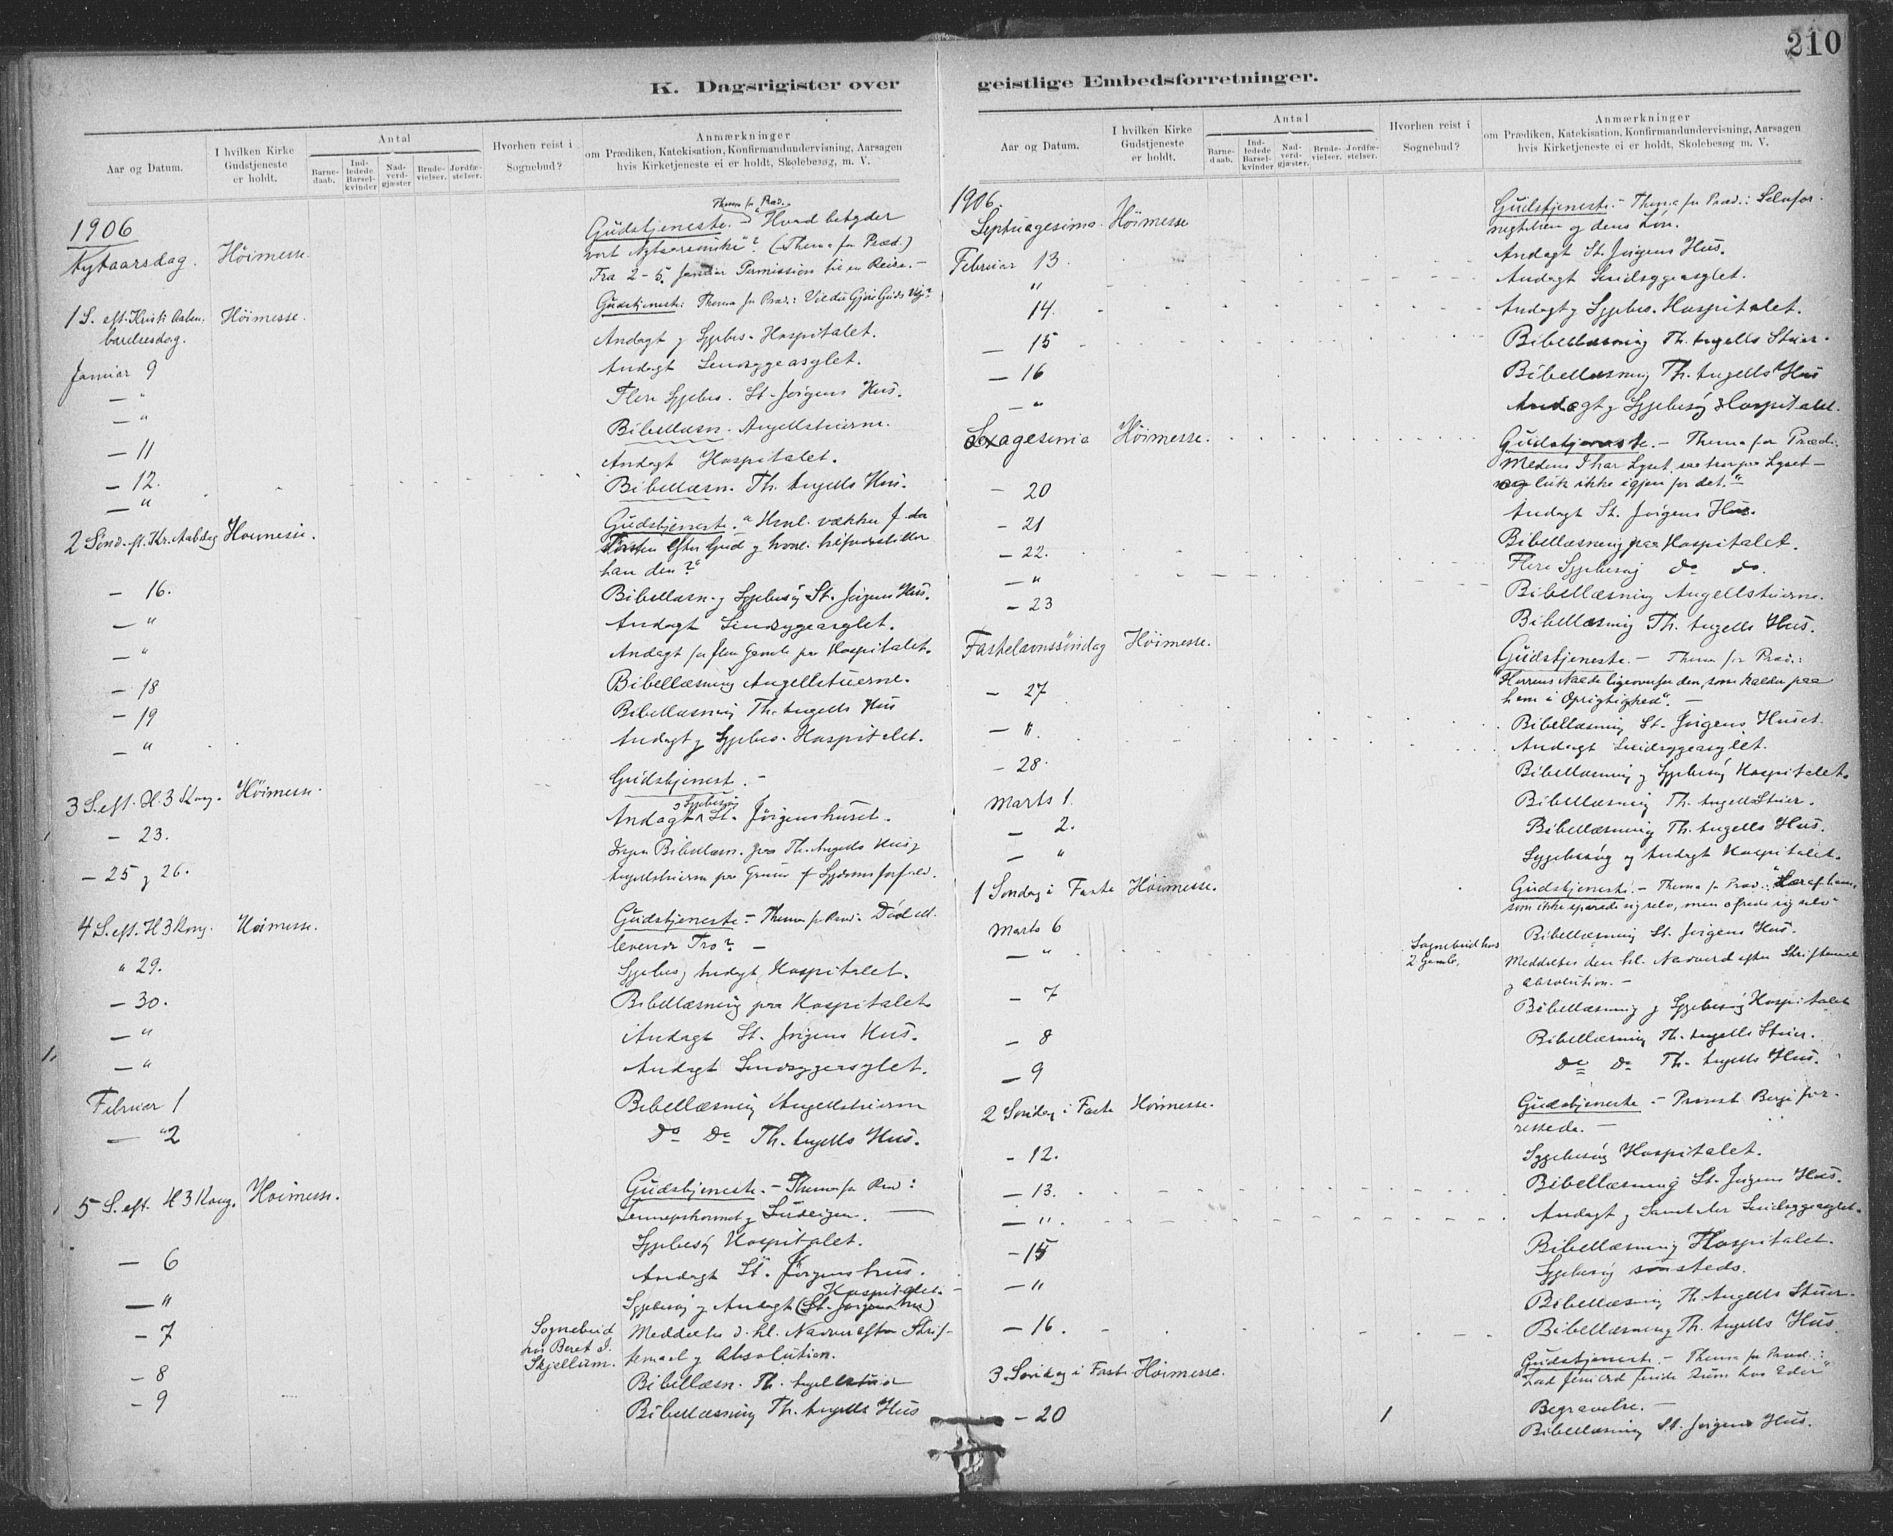 210
K. Dagsrigister over
Aar og Datum.
I hvilken Kirke Gudstjeneste er holdt.
Antal
Barnedaab.
Indledede Barselkvinder
Nadverdgjæster
Brudevielser.
Jordfæstelser.
Hvorhen reist i Sognebud?
Anmærkninger
om Prædiken, Katekisation, Konfirmandundervisning, Aarsagen
hvis Kirketjeneste ei er holdt, Skolebesøg, m. V.
1906
Nytaarsdag. Höimesse. Gudstjeneste. Thema for Præd. "Hvad betyder
vort Nytaarsønske"? (Thema for Præd.)
Fra 2-5 Januar Permission til en Reise. -
1 S. eft. Kristi Aaben- Höimesse. Gudstjenest: Thema for Præd.: Vil du Gjøre Guds Vilje?
barelsesdag. Andagt og Sygebes. Hospitalet.
Januar 9 Andagt Sindssygeasylet.
— " Flere Sygebes. St. Jörgens Hus.
— " Bibellæsn. Angellstuerne.
— 11 Andagt Hospitalet.
— 12. Bibellæsn. Th. Angells Hus.
— "
2 Sönd. ft. Kr. Aabdag Höimesse. Gudstjeneste. "Hvad vækker
Tørsten efter Gud og hvorl. tilfredsstiller
han den?"
— 16. Bibellæsn. og Sygebesög St. Jörgens Hus.
— " Andagt Sindssygeasylet.
— " Andagt for flere Gamle paa Hospitalet.
— 18 Bibellæsning Angellstuerne.
— 19 Bibellæsning Th. Angells Hus
— " Andagt og Sygebes. Hospitalet.
3 S. eft. H. 3 Kong. Höimesse. Gudstjenest. -
— 23. Andagt og Sygebesög St. Jörgenshuset.
— 25 og 26. Ingen Bibellæsn. paa Th. Angells Hus og
Angellstuerne paa Grund af Sygdomsforfald.
4 S. eft. H 3 Kong. Höimesse. Gudstjeneste - Thema for Præd: Död ell.
levende Tro? -
" 29. Sygebes. og Andagt Hospitalet.
— 30. Bibellæsning paa Hospitalet.
— " Andagt St. Jörgens Hus.
— " Andagt Sindssygeasylet.
Februar 1 Bibellæsning Angellstuerne
— "2 Do Do Th. Angells Hus.
5 S. eft. H 3 Kong. Höimesse. Gudstjeneste. - Thema for Præd:
Sennepskornet og Surdeigen. —
Sygebesög Hospitalet.
— 6 Andagt St. Jörgenshus.
— " Sygebesög og Andagt Hospitalet. (St. Jörgens Hus)
— 7 Sognebud hos Beret Skjellum. Meddeltes d. hl. Nadver efter Skrif-
temaal og Absolution.
— 8 Bibellæsn. Th. Angellstuer
— 9 Bibellæsning Th. Angells Hus
geistlige Embedsforretninger.
Aar og Datum.
I hvilken Kirke Gudstjeneste er holdt.
Antal
Barnedaab.
Indledede Barselkvinder
Nadverdgjæster.
Brudevielser.
Jordfæstelser.
Hvorhen reist i Sognebud?
Anmærkninger
om Prædiken, Katekisation, Konfirmandundervisning, Aarsagen
hvis Kirketjeneste ei er holdt, Skolebesøg, m. V.
1906.
Septuagesima. Höimesse Gudstjeneste. - Thema for Præd.: Selvfor-
negtelsen og dens Lön.
Februar 13. Andagt St. Jörgens Hus.
" Andagt Sindsygeasylet.
14. Andagt og Sygebes. Hospitalet.
— 15 Bibellæsning Th. Angells Stuer.
— 16 Bibellæsning Th. Angells Hus
— " Andagt og Sygebesög Hospitalet.
Sexagesima Höimesse. Gudstjeneste. - Thema for Præd:
"Medens I har Lyset, saa tror paa Lyset -
og luk ikke igjen for det."
— 20 Andagt St. Jörgens Hus.
— 21 Bibellæsning paa Hospitalet.
— 22. Flere Sygebesög do do.
— " Bibellæsning Angellstuerne.
— 23 Bibellæsning Th. Angells Hus.
Fastelavnssöndag Höimesse. Gudstjeneste. - Thema for Præd.:
"Herrens Naade ligeoverfor den, som kalder paa
ham i Oprigtighed". -
— 27 Bibellæsning St. Jörgens Huset.
— ". Andagt Sindsygeasylet.
— 28. Bibellæsning og Sygebesög Hospitalet.
Marts 1. Bibellæsning Th. Angells Stuer.
— 2. Bibellæsning Th. Angells Hus.
— " Sygebesög og Andagt Hospitalet.
1 Söndag i Faste Höimesse. Gudstjeneste. - Thema for Præd.: "Lær af ham,
som ikke sparede sig selv, men ofrede sig selv"
Marts 6 Bibellæsning St. Jörgens Hus.
— " Sognebud hos 2 Gamle. Meddeltes den hl. Nadverd efter Skriftemaal
og Absolution. -
— 7 Bibellæsning og Sygebesög Hospitalet
— 8 Bibellæsning Th. Angells Stuer.
— 9 Do Do Th. Angells Hus.
2 Söndag i Faste Höimesse. Gudstjeneste - Provst Berge for-
rettede. -
— 12. Sygebesög Hospitalet.
— 13. Bibellæsning St. Jörgens Hus.
— ". Andagt og Samtaler Sindsygeasylet.
— 15 Bibellæsning Hospitalet.
Sygebesög sammesteds.
— " Bibellæsning Th. Angells Stuer.
— 16. Bibellæsning Th. Angells Hus.
3 Söndag i Fast. Höimesse. Gudstjeneste. - Thema for Præd.:
"Lad mit Ord finde Rum hos Eder"
Begravelse. -
— 20 1 Bibellæsning St. Jörgens Hus.